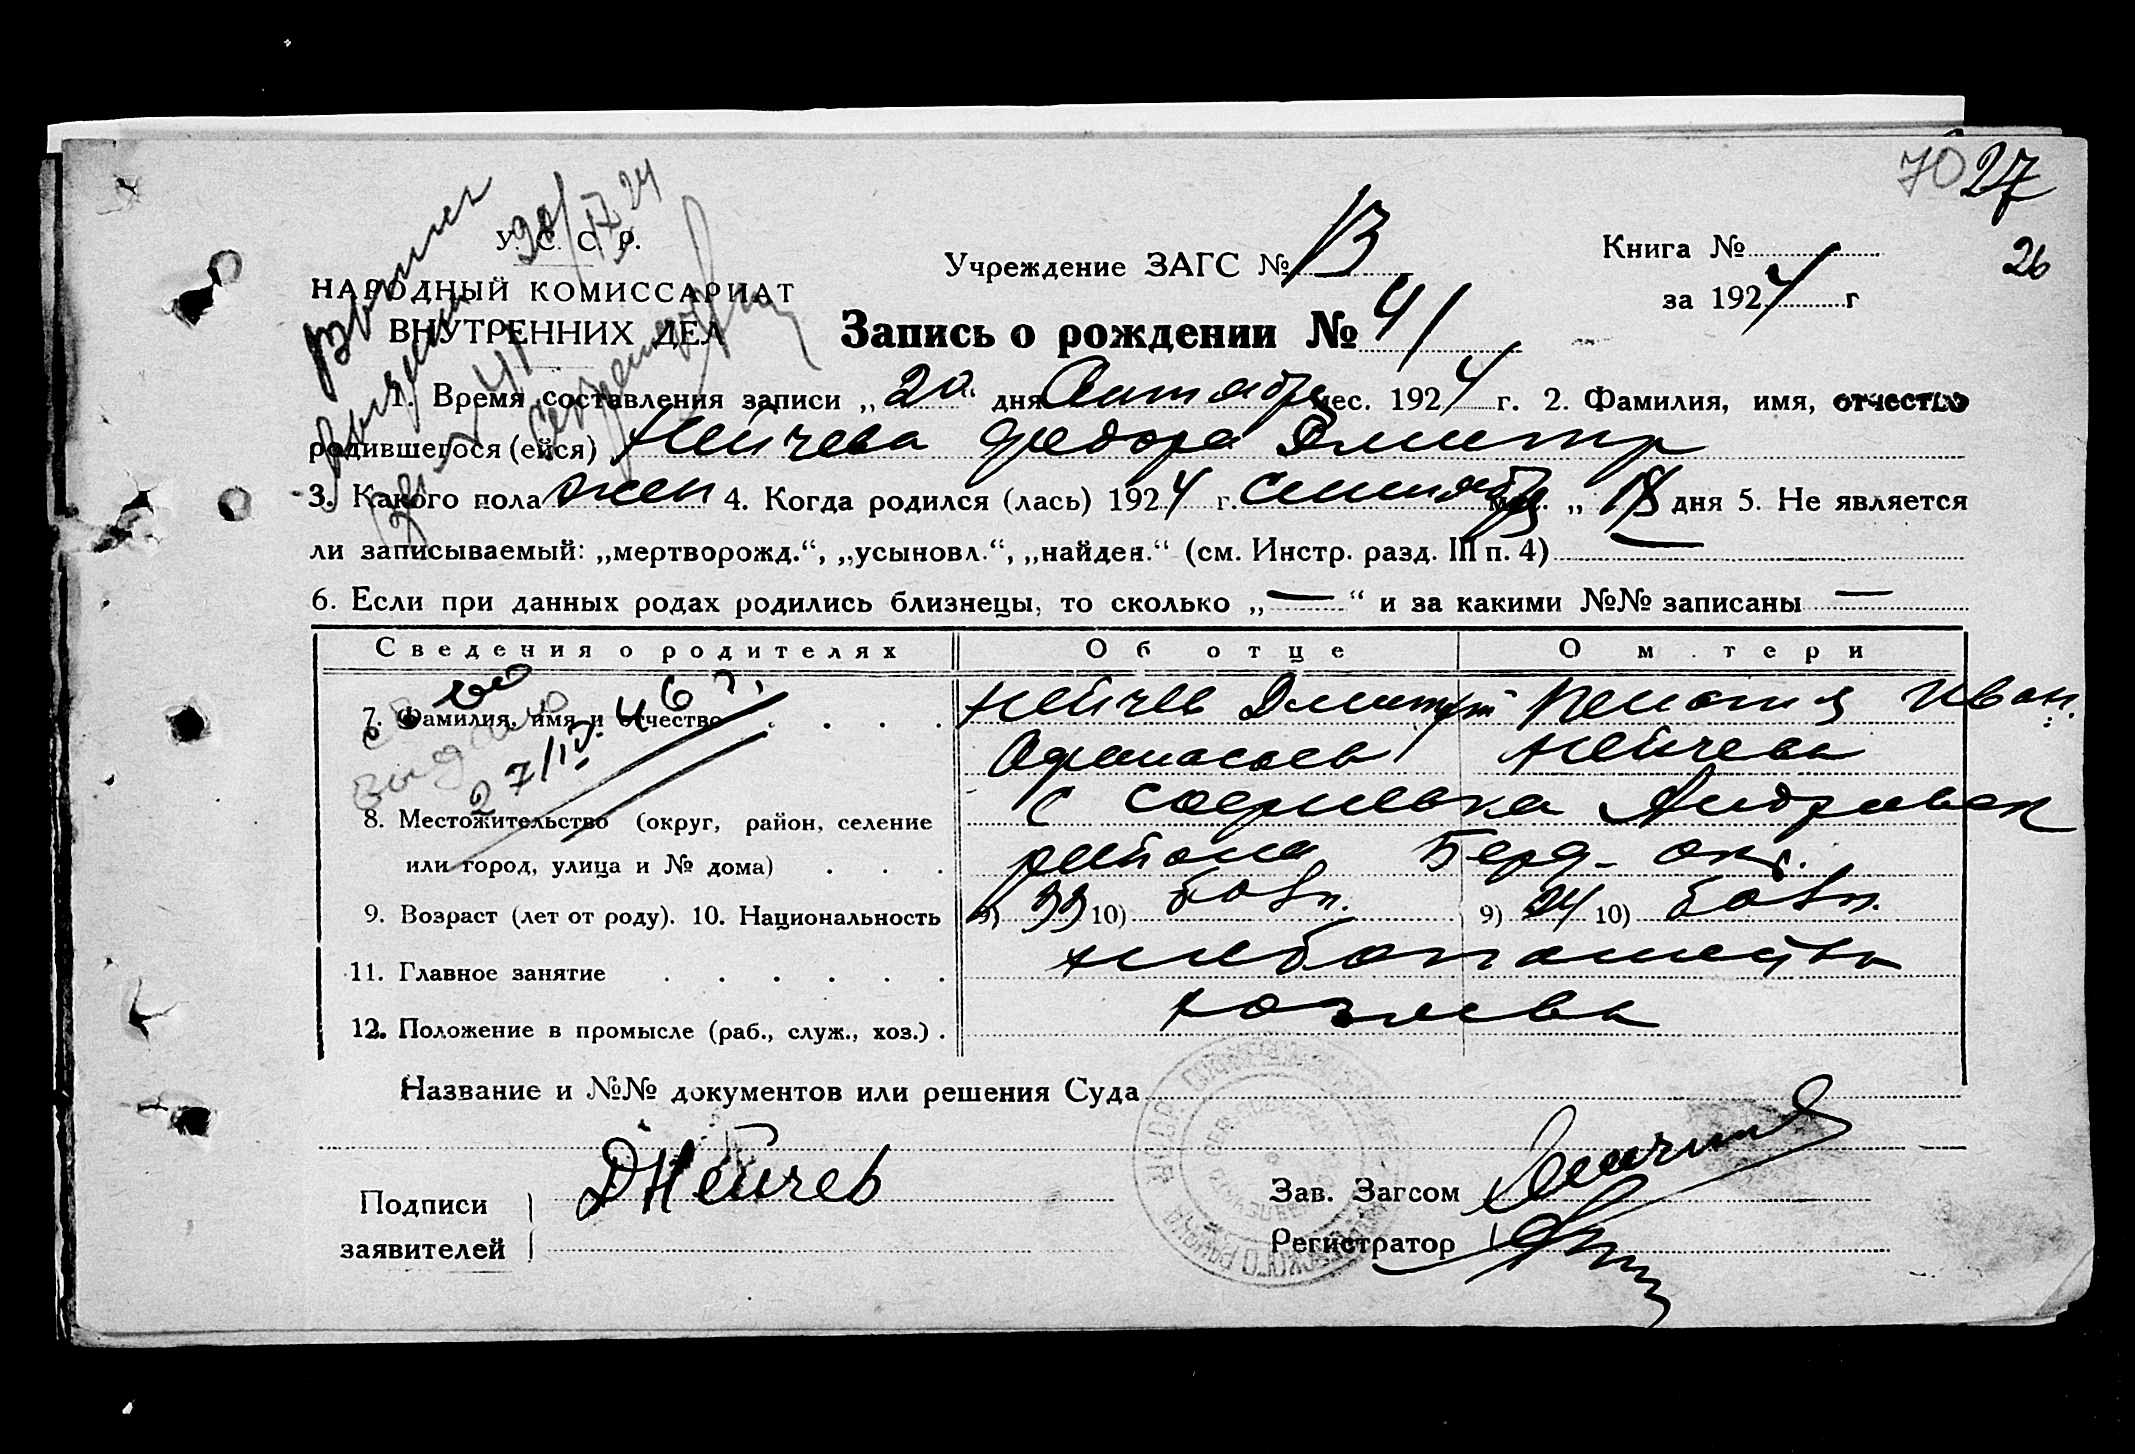 70 27
26
У. С. С. Р.
НАРОДНЫЙ КОМИССАРИАТ
ВНУТРЕННИХ ДЕЛ
Учреждение ЗАГС № 13
Книга №
за 1924 г
Запись о рождении № 41
1. Время составления записи „20“ дня Сентября мес. 1924 г. 2. Фамилия, имя, отчество
родившегося (ейся) Нейчева Федора Дмитр
3. Какого пола жен 4. Когда родился (лась) 1924 г. сентября мес. „ 18 дня 5. Не является
ли записываемый: „мертворожд.“, „усыновл.“, „найден.“ (см. Инстр. разд. III п. 4) —
6. Если при данных родах родились близнецы, то сколько „—“ и за какими №№ записаны —
Сведения о родителях Об отце О матери
7. Фамилия, имя и отчество Нейчев Дмитрий Иван.
Афанасьев Нейчева
8. Местожительство (округ, район, селение с Софиевка Андровск
или город, улица и № дома) района Берд. окр.
9. Возраст (лет от роду). 10. Национальность 9) 33 10) болг. 9) 24 10) болг.
11. Главное занятие хлебопашество
12. Положение в промысле (раб., служ., хоз.) хозяева
Название и №№ документов или решения Суда
Подписи
заявителей
ДНейчев
Зав. Загсом
Регистратор
выдано
27/IV 46 г.